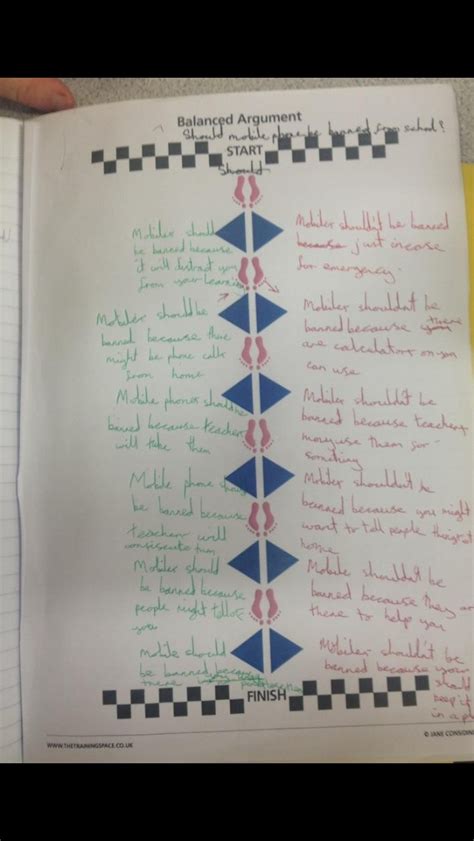 Balanced Argument
Should mobile phone be banned from school?
START
Should
Mobiles should
be banned because
it will distract you
from your learning
Mobiles shouldn't be banned
because just incase
for emergency.
Mobiles should be
banned because there
might be phone calls
from home
Mobiles shouldn't be
banned because there
are calculators on you
can use
Mobile phones should be
banned because teachers
will take them
Mobiles shouldn't be
banned because teachers
may use them for
somthing
Mobile phone should
be banned because
teachers will
Mobiles shouldn't be
banned because you might
want to tell people things at
home
Mobiles should
be banned because
people might
you
Mobiles shouldn't be
banned because they are
there to help you
mobile should
be banned
there
Mobiles shouldn't be
banned because your
should
keep it
in a
FINISH
WWW.THETRAININGSPACE.CO.UK
© JANE CONSIDINE